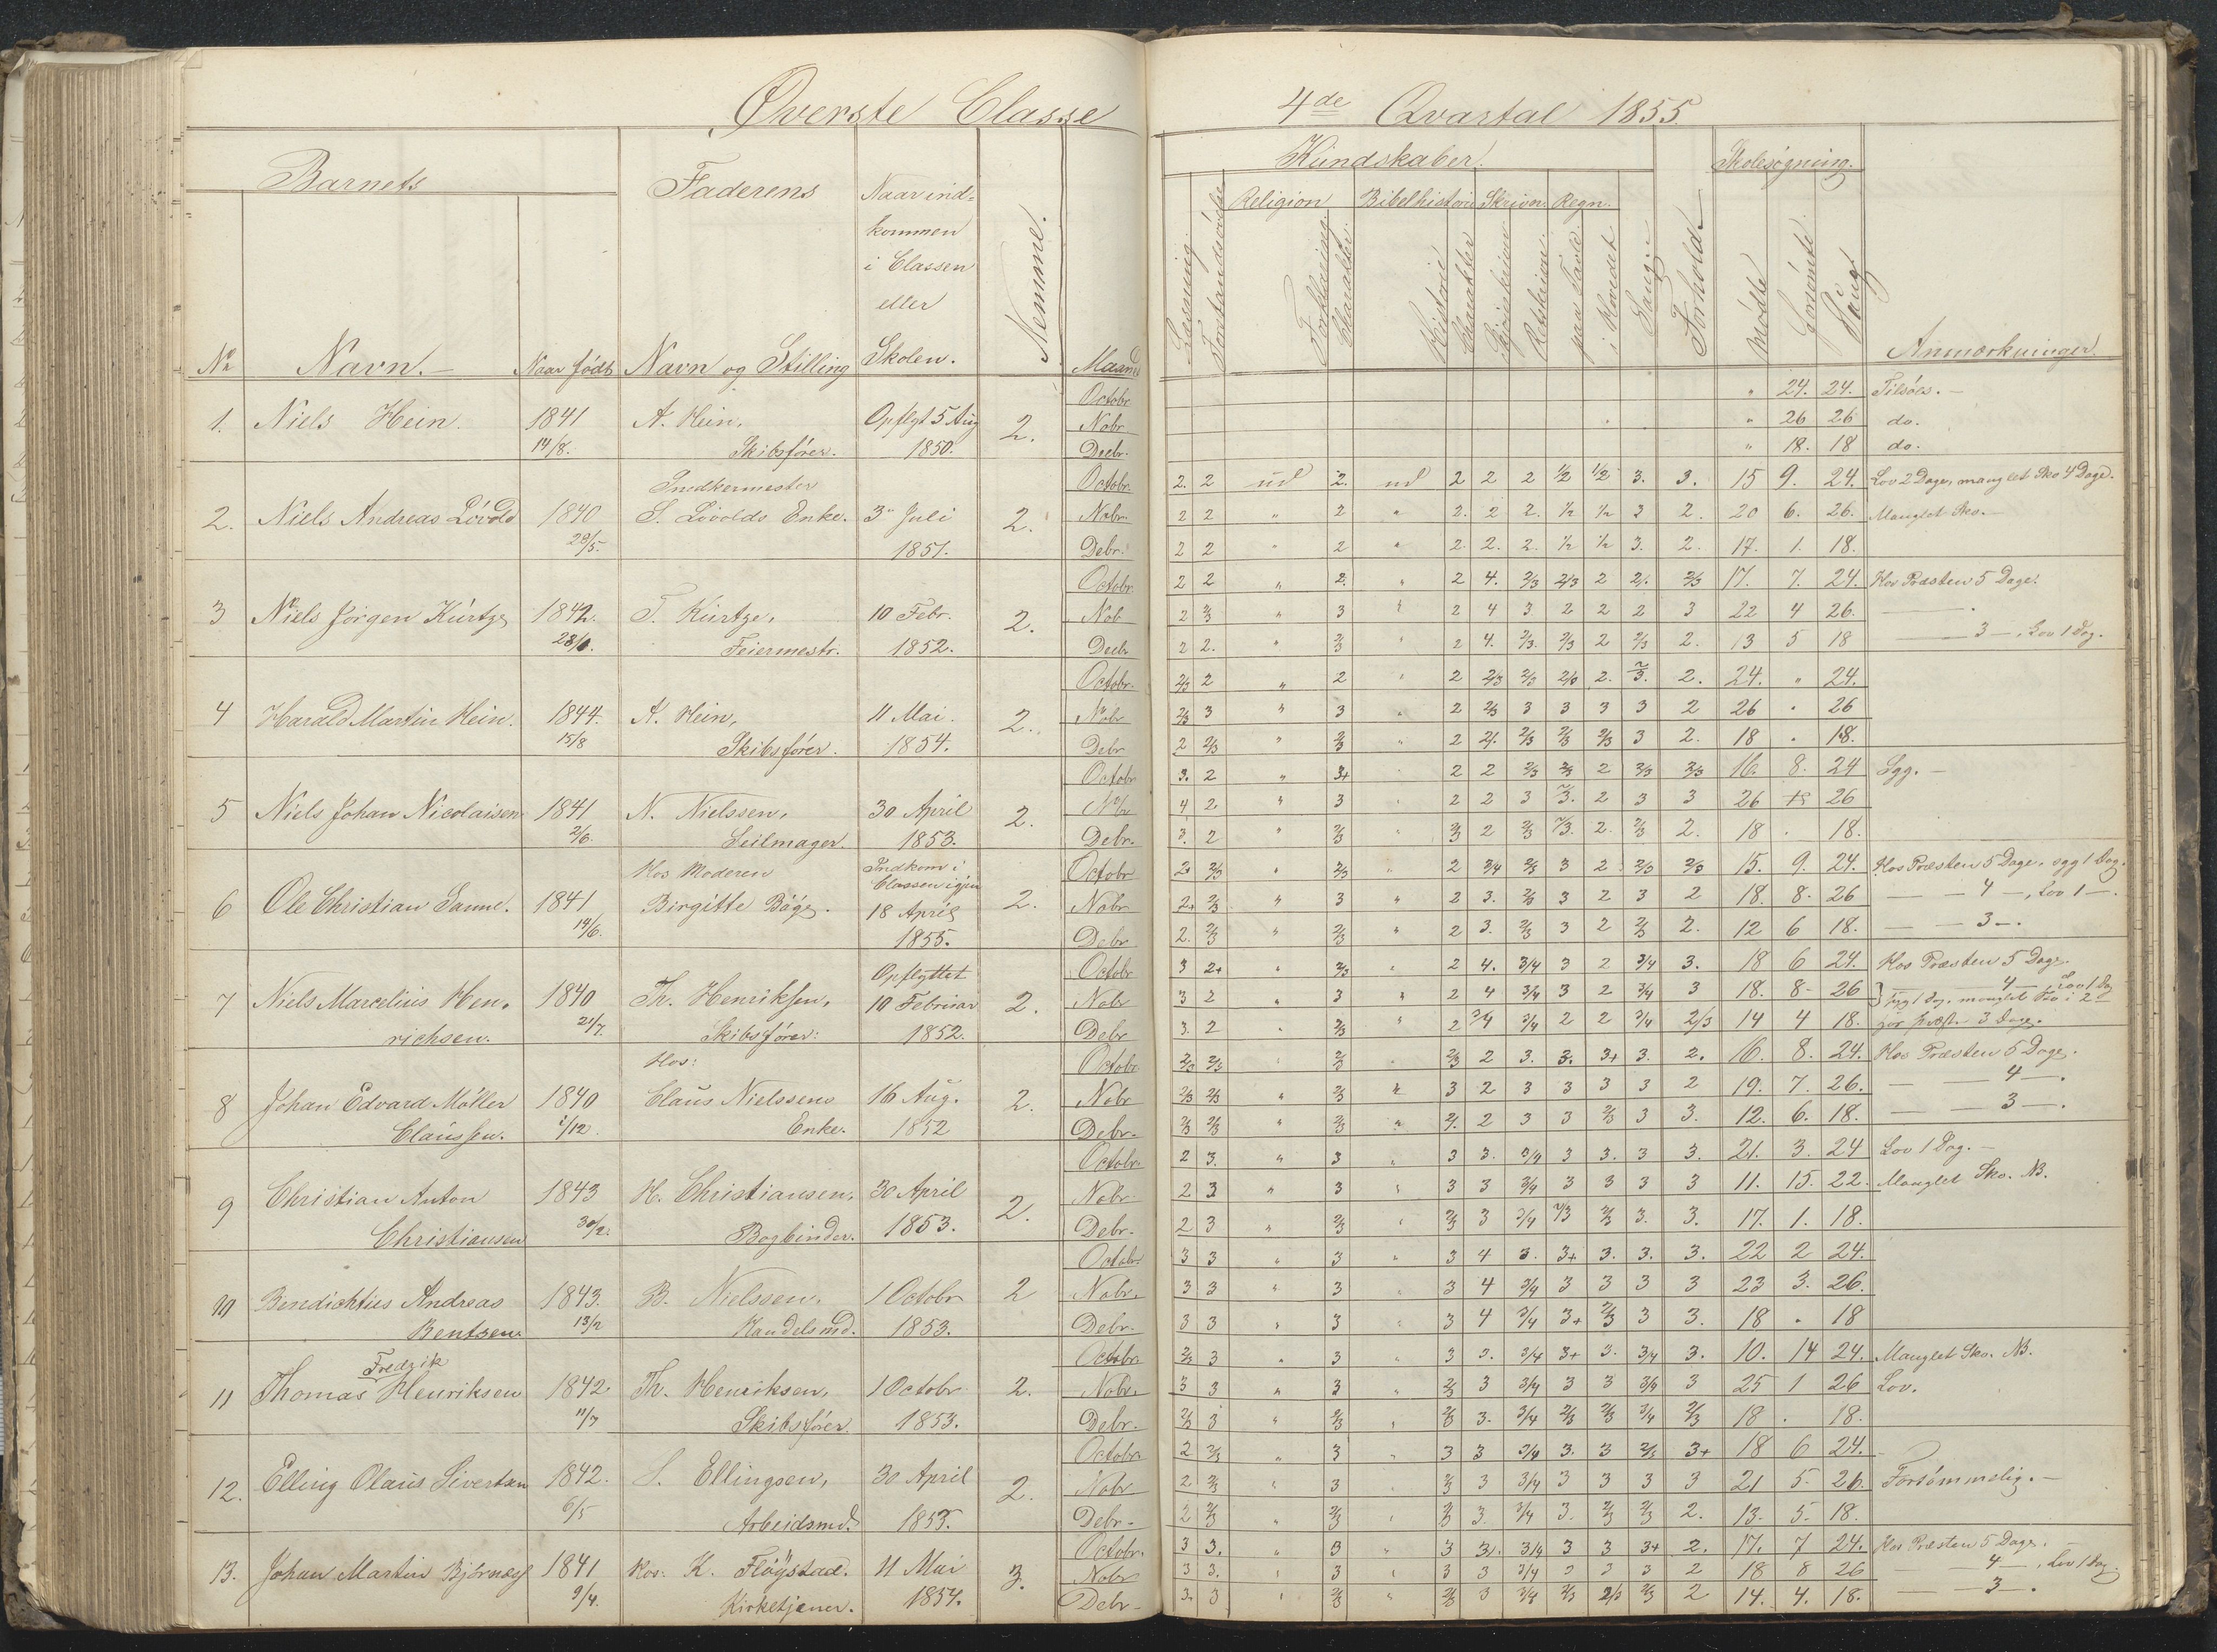 Øverste Classe
4de Qvartal 1855
Barnets
Faderens
Naar ind-
kommen
i Classen
eller
Skolen.
Nemme.
Kundskaber.
Skolesøgning.
Religion Bibelhistorie Skrivn. Regn.
Forklaring Charakter. Historie Charakter paa Tavle. i Hovedet Sang. Forhold Mødte Forsømte
No Navn. Naar født Navn og Stilling Maaned Anmærkninger
Octobr " 24. 24. Tilsøes.
1. Niels Hein. 1841 A. Hein, Opflyt 5 Aug 2. Nobr " 26 26 do.
14/8. Skibsfører. 1850. Decbr. " 18. 18 do.
Snedkermester Octobr. 2. 2 ud 2. ud 2 2 2 1/2 1/2 3. 3. 15 9. 24. Lov 2 Dage, manglet Sko 4 Dage.
2. Niels Andreas Løvold 1840 S. Løvolds Enke. 3" Juli 2. Nobr. 2 2 " 2 " 2. 2 2. 1/2 1/2 3 2. 20 6. 26. Manglet Sko.
28/5. 1851. Debr. 2 2 " 2 " 2. 2. 2. 1/2 1/2 3. 2. 17. 1. 18.
Octobr 2 2 " 2. " 2 4. 2/3 2/3 2 2. 2/3 17. 7. 24. Hos Præsten 5 Dage.
3 Niels Jørgen Kürtze 1842. T. Kürtze, 10 Febr. 2. Nob 2 2/3 " 3 " 2 4 3 2 2 2 3 22 4 26.
Feiermestr. 1852. Decbr 2 2. " 2/3 " 2 4. 2/3. 2/3 2 2/3 2. 13 5 18 — 3 —, Lov 1 Dag.
Octobr. 2/3 2 " 2 " 2 2/3 2/3 2/3 2. 2/3. 2. 24. " 24.
4 Harald Martin Hein. 1844. A. Hein, 11 Mai. 2. Nobr 2/3 3 " 3 " 2 2/3 3 3 3 3 2 26 " 26
15/8 Skibsfører. 1854. Debr 2 2/3 " 2/3 " 2 2. 2/3 2/3 2/3 3 2. 18 " 18.
Octobr 3. 2 " 3+ " 2 2 2/3 2/3 2 2/3 2/3 16. 8. 24 Syg.
5 Niels Johan Nicolaisen 1841 N. Nielssen, 30 April 2. Nobr 4 2 " 3 " 2 2 3 2/3. 2 3 3 26 26
2/6. Seilmager. 1853. Debr. 3. 2 " 2/3 " 2/3 2 2/3 2/3. 2. 2/3 2. 18 " 18.
Hos Moderen Indkom i Classen igjen Octobr 2+ 2/3 " 2/3 " 2 3/4 2/3 3 2 2/3 2/3 15. 9. 24. Hos Præsten 5 Dage, syg 1 Dag.
6 Ole Christian Sanne. 1841 Birgitte Bøge. 18 April 2. Nobr 2+ 2/3 " 3 " 2 3. 2/3 3 2 3 2 18. 8. 26 — 4 —, Lov 1 —.
14/6. 1855. Debr 2. 2/3 " 2/3 " 2 3. 2/3 3 2 2/3 2. 12 6 18. — 3 —.
Opflyttet Octobr 3 2+ " 2/3 " 2 4. 3/4 3 2 3/4 3. 18 6 24. Hos Præsten 5 Dage.
7 Niels Marcelius Hen- 1840 Th. Henriksen, 10 Februar 2. Nobr 3 2 " 3 " 2 4 3/4 3 2 3/4 3 18. 8. 26 — 4 —, Lov 1 Dag
richsen. 21/7. Skibsfører: 1852. Debr 3. 2 " 2/3 " 2 3/4 3/4 2 2 3/4 2/3 14 4 18. 3 Dage.
Hos: Octobr 2/3 2/3 " 2/3 " 2/3 2 3. 3. 3+ 3. 2. 16. 8. 24. Hos Præsten 5 Dage.
8 Johan Edvard Møller 1840 Claus Nielssens 16 Aug. 2. Nobr 2/3 2/3 " 2/3 " 3 2 3 3 3 3 2 19. 7. 26. — 4 —.
Claussen. 1/12. Enke. 1852 Debr. 2/3 2/3 " 2/3 " 2. 2 3 3 2/3 3 3. 12. 6. 18. — 3 —.
Octobr. 2 3. " 3 " 3 3. 3/4 3 3. 3 3. 21. 3. 24 Lov 1 Dag.
9 Christian Anton 1843 H. Christiansen, 30 April 2. Nobr. 2 3 " 3 " 3 3 3/4 3 3 3 3 11. 15. 22. Manglet Sko. NB.
Christiansen Bogbinder. 1853. Debr. 2 3 " 2/3 " 2/3 3 3/4 2/3 2/3 3. 3. 17. 1. 18.
Octobr 3 3 " 3 " 3 4 3. 3+ 3. 3. 3. 22 2 24.
10 Benedichtus Andreas 1843. B. Nielssen, 1 Octobr 2 Nobr. 3 3 " 3 " 3 4 3/4 3 3 3 3 23 3. 26.
Bentsen. 13/2 Handelsmd. 1853. Debr. 3 3 " 3 " 3 4 3/4 3+ 2/3 3 3. 18 " 18
Fredrik Octobr. 2/3 3 " 3 " 3 3. 3/4 3+ 3. 3/4 3. 10. 14 24. Manglet Sko. NB.
11 Thomas Henriksen 1842 Th. Henriksen, 1 Octobr 2. Nobr. 3 3 " 3 " 2/3 3 3/4 3 3 3/4 3 25 1 26 Lov.
11/7 Skibsfører. 1853. Debr. 2/3 3 " 2/3 " 2/3 3. 3/4 2/3 2/3 3/4 2/3 18 " 18.
Octobr. 2 2/3 " 3 " 3 3 3/4 3. 3 2/3 3+ 18 6 24.
12. Elling Olaus Sivertsen 1842. S. Ellingsen, 30 April 2. Nobr 2 2/3 " 3 " 2/3 3 3/4 3 3 3 3 21 5. 26. Forsømmelig.
6/5 Arbeidsmd. 1853. Debr. 2 2/3 " 2/3 " 2/3 3. 3/4 3. 2/3 2/3 2. 13. 5. 18.
Octobr. 3 3. " 3 " 3 3. 3/4 3 3 3+ 2. 17. 7 24. Hos Præsten 5 Dage.
13. Johan Martin Bjørnæs 1841 Hos: K. Fløystad. 11 Mai 3. Nobr 3 3. " 3 " 3 3 3/4 3 3 3 2 18 8 26 — 4 —, Lov 1 Dag.
9/4. Kirketjener. 1854. Debr. 3. 3 " 2/3 " 2/3 3 3/4 2/3 2/3 2/3 2 14. 4. 18. — 3 —.